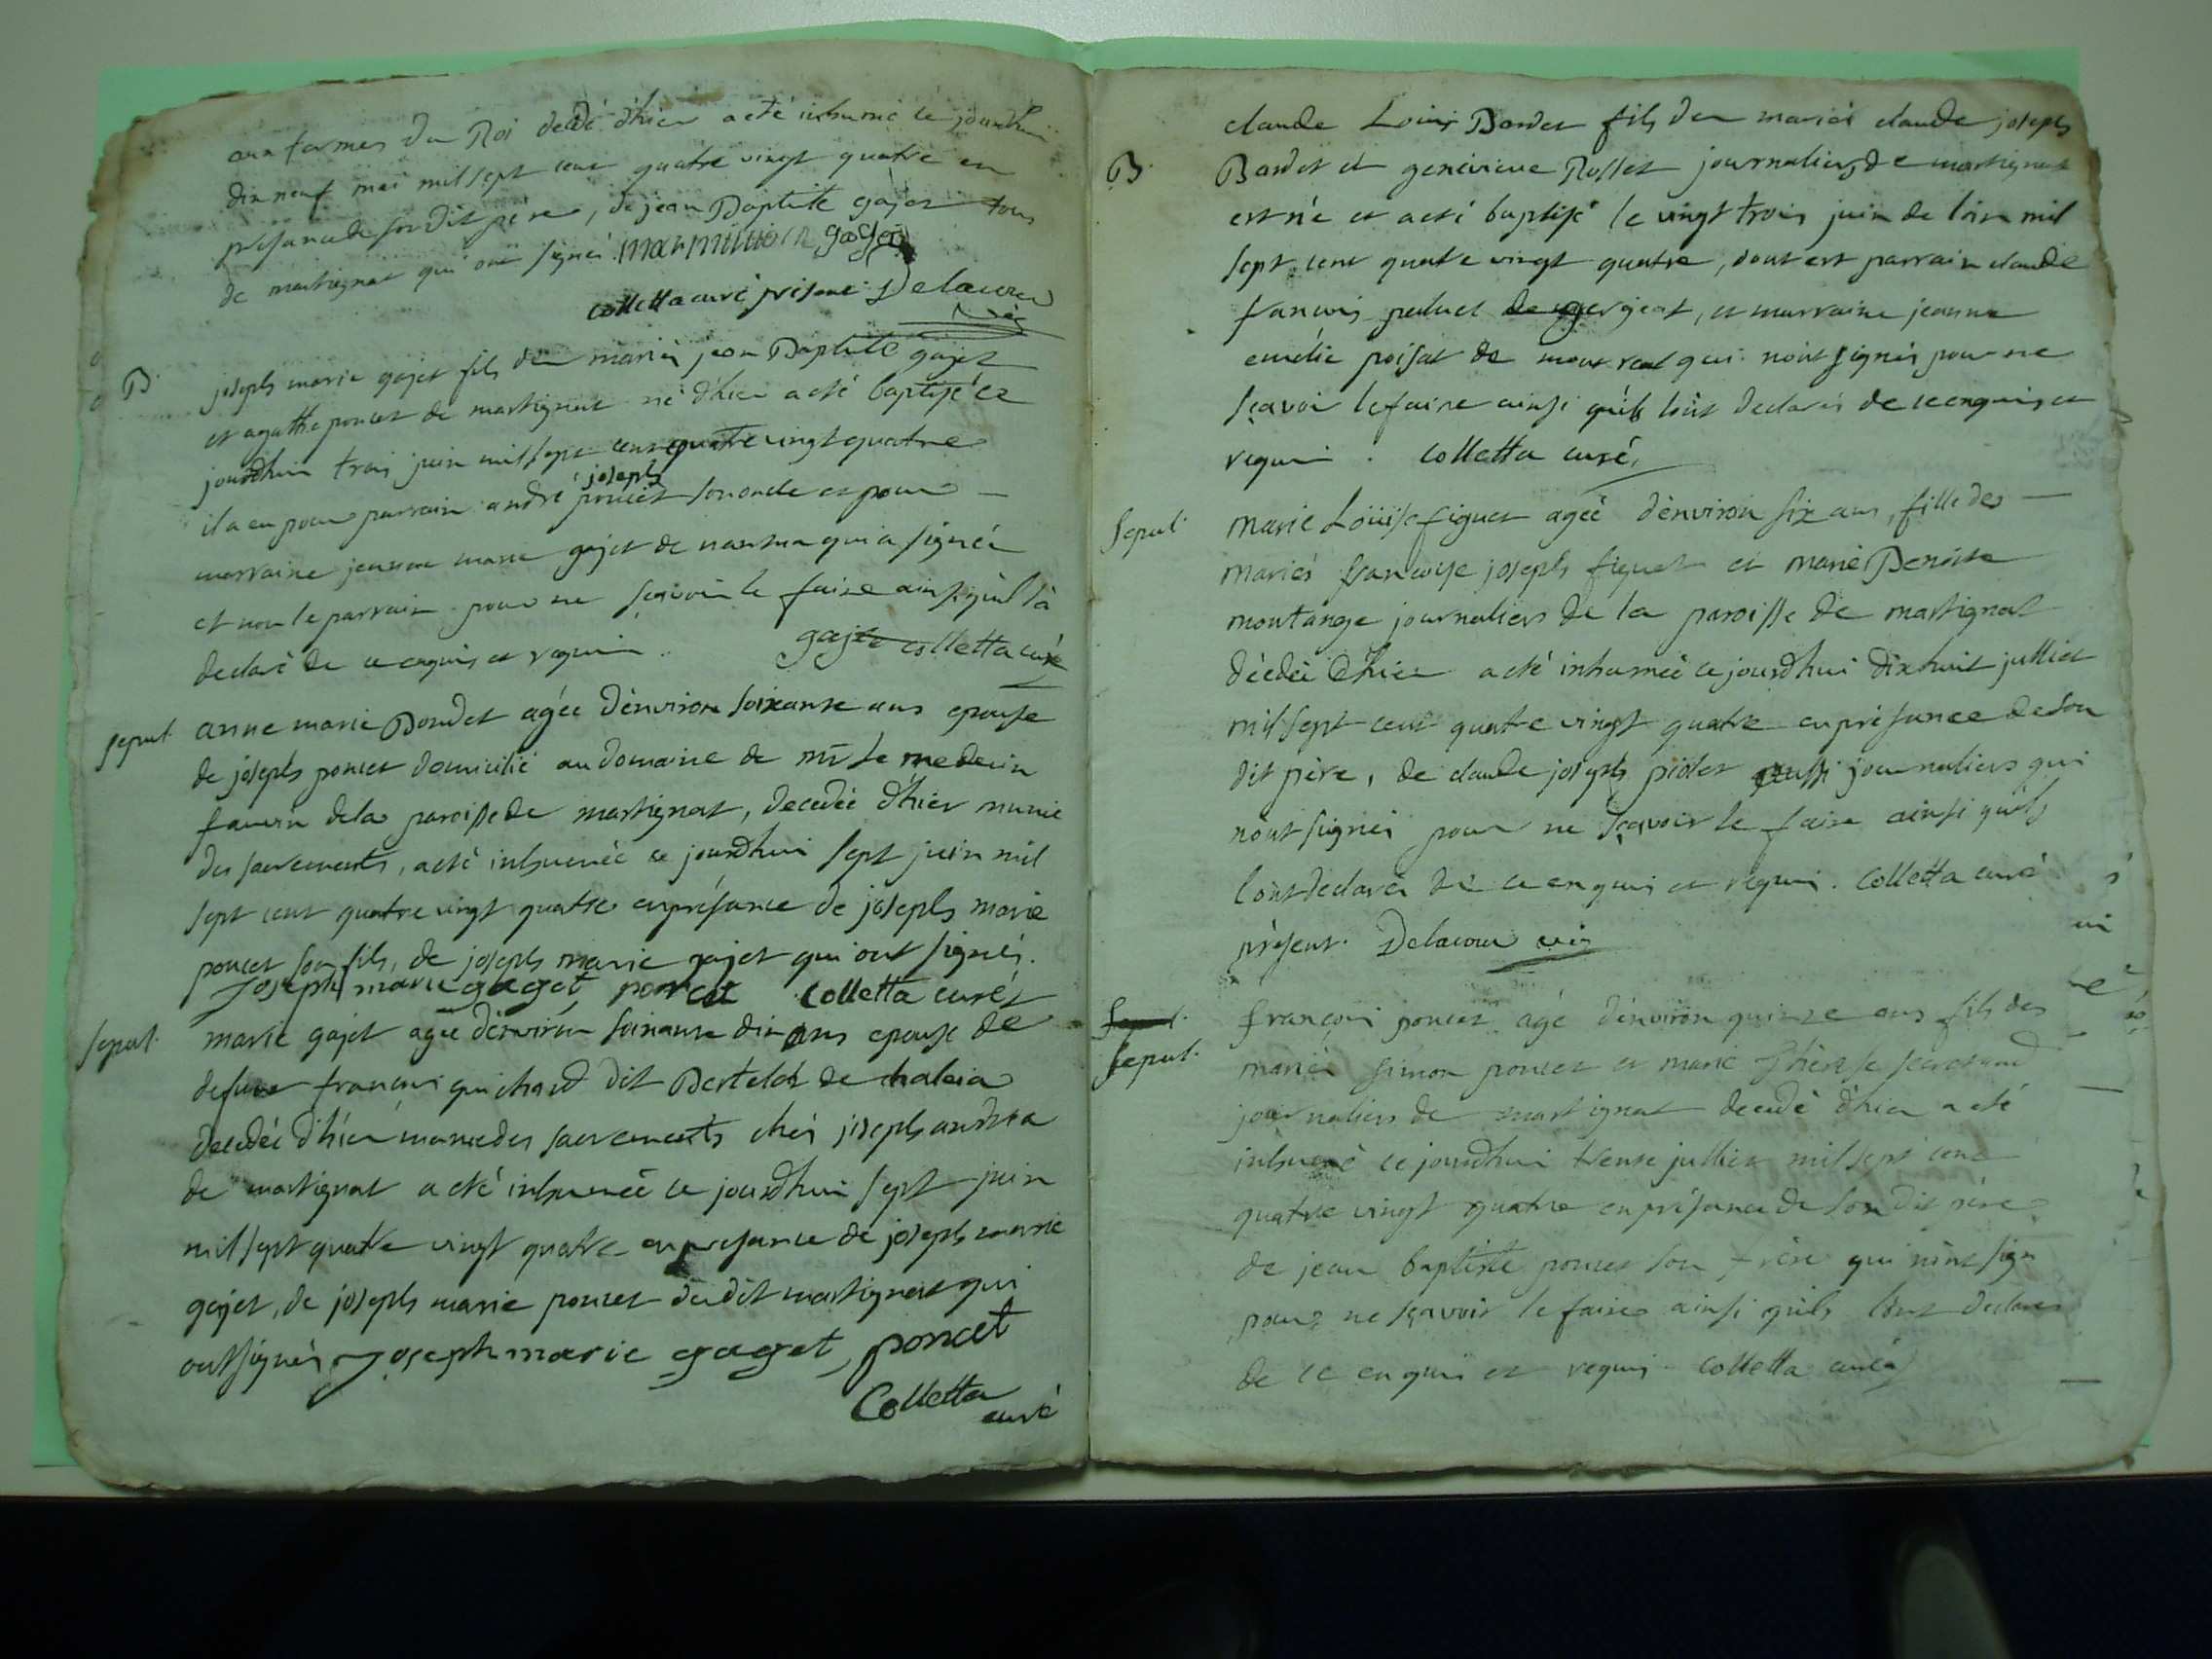 aux fermes du Roi decédé d'hier a été inhumé ce jourdhui
dix neuf mai mil sept cent quatre vingt quatre en
présance de son dit père, de jean Baptiste gajet tous
de martignat qui ont signés marmillion gaget
colletta curé présent Delacour
vic
B. joseph marie gajet fils des mariés jean Baptiste gajet
et agathe poncet de martignat né d'hier a été baptisé ce
jourdhui trois juin mil sept cent quatre vingt quatre
joseph
il a eu pour parrain andré poncet son oncle et pour
marraine jeanne marie gajet de nantua qui a signée
et non le parrain pour ne sçavoir le faire ainsi qu'il l'a
declaré de ce enquis et requis. gajet colletta curé
sepul. anne marie Bondet agée d'environ soixante ans epouse
de joseph poncet domicilié au domaine de mr le medecin
favern dela paroisse de martignat, decedée d'hier munie
des sacrements, a été inhumée ce jourdhui sept juin mil
sept cent quatre vingt quatre en présance de joseph marie
poncet son fils, de joseph marie gajet qui ont signés.
Joseph marie gaget poncet colletta curé
sepul. marie gajet agée d'environ soixante dix ans epouse de
defunt françois guichard dit Bertelet de chaleia
decedée d'hier munie des sacrements chés joseph andréa
de martignat a été inhumée ce jourdhui sept juin
mil sept quatre vingt quatre en presance de joseph marie
gajet, de joseph marie poncet du dit martignat qui
ont signés Joseph marie gaget poncet
Colletta
curé
claude Louis Bondet fils des mariés claude joseph
B. Bondet et genevieve Rosset journaliers de martignat
est né et a eté baptisé le vingt trois juin de l'an mil
sept cent quatre vingt quatre, dont est parrain claude
françois peduet de gergeat, et marraine jeanne
emélie poisat de mont real qui n'ont signés pour ne
sçavoir le faire ainsi qu'ils l'ont declarés de ce enquis et
requis. colletta curé
Sepul. marie Loüise figuet agée d'environ six ans, fille des
mariés françoise joseph figuet et marie Benoite
montange journaliers de la paroisse de martignat
décédée d'hier a été inhumée ce jourdhui dix huit julliet
mil sept cent quatre vingt quatre en présance de son
dit père, de claude joseph piolet aussi journaliers qui
n'ont signés pour ne sçavoir le faire ainsi qu'ils
l'ont declarés de ce enquis et requis. colletta curé
présent. Delacour vic
Sepul. françois poncet agé d'environ quinze ans fils des
Sepul. mariés simon poncet et marie Thérèse
journaliers de martignat decedé d'hier a eté
inhumé ce jourdhui trente julliet mil sept cent
quatre vingt quatre en présance de son dit père
de jean baptiste poncet son frère qui n'ont sign
pour ne sçavoir le faire ainsi qu'ils l'ont declarés
de ce enquis et requis. colletta curé